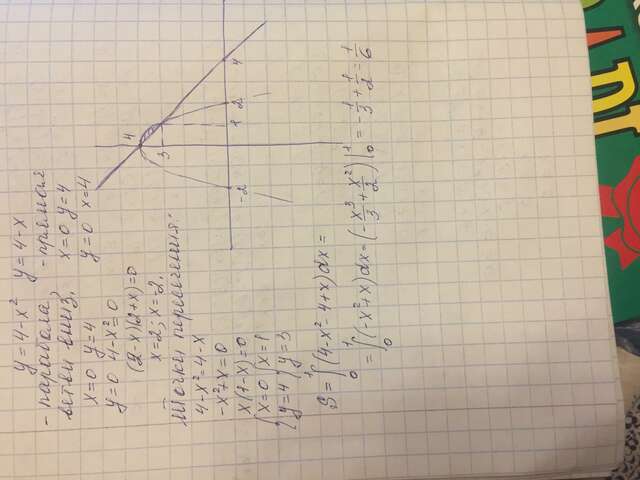 y=4-x² y=4-x
- парабола, - прямая
ветви вниз.
x=0 y=4 x=0 y=4
y=0 4-x²=0 y=0 x=4
(2-x)(2+x)=0
x=2; x=-2.
Точки пересечения:
4-x²=4-x
-x²+x=0
x(1-x)=0
{x=0 {x=1
{y=4 {y=3
4
3
-2 1 2 4
S=∫₀¹(4-x²-4+x)dx=
=∫₀¹(-x²+x)dx=(-x³/3+x²/2)|₀¹=-1/3+1/2=1/6